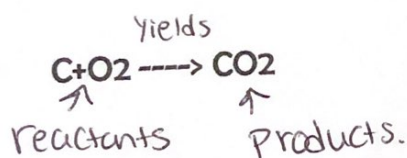 Yields
C+O2 ----> CO2
reactants products.